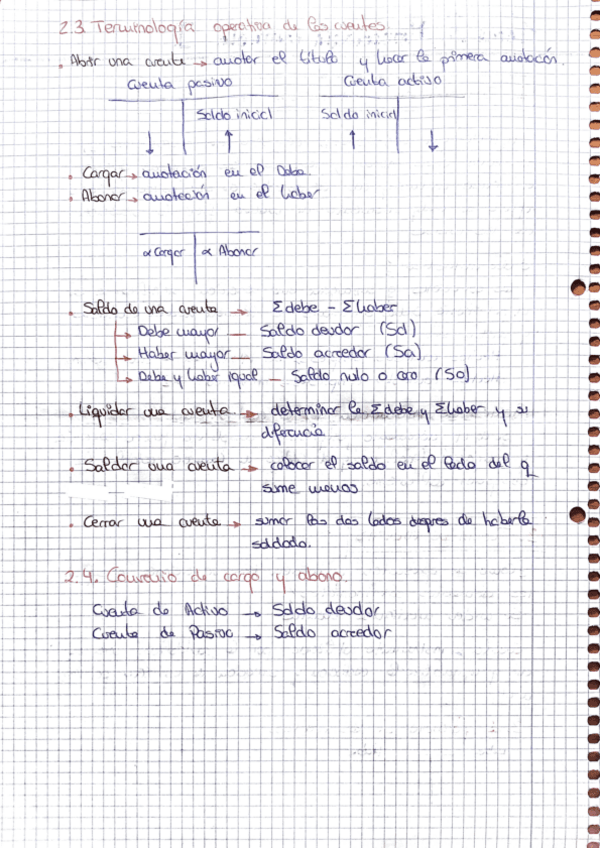 2.3 Terminología operativa de las cuentas.
• Abrir una cuenta → anotar el título y hacer la primera anotación.
Cuenta pasivo Cuenta activo
Saldo inicial Saldo inicial
↓ ↑ ↑ ↓
• Cargar → anotación en el Debe.
• Abonar → anotación en el haber
α Cargar α Abonar
• Saldo de una cuenta → Σdebe - Σhaber
→ Debe mayor — Saldo deudor (Sd)
→ Haber mayor — Saldo acreedor (Sa)
→ Debe y haber igual — Saldo nulo o cero (So)
• Liquidar una cuenta → determinar la Σdebe y Σhaber y su
diferencia
• Saldar una cuenta → colocar el saldo en el lado del q
sume menos
• Cerrar una cuenta → sumar los dos lados despres de haberla
saldado.
2.4. Convenio de cargo y abono.
Cuenta de Activo → Saldo deudor
Cuenta de Pasivo → Saldo acreedor